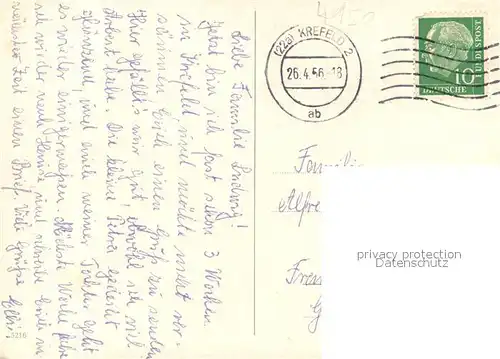 Liebe Familie Ludwig!
Jetzt bin ich fast schon 3 Wochen
in Krefeld und möchte nicht ver-
säumen Euch einen Gruß zu senden.
Hier gefällt's mir gut, obwohl ich viel
Arbeit habe. Die kleine Petra gedeiht
und auch meiner Tochter geht
es wieder einigermaßen. Nächste Woche fahre
ich wieder nach Hause und schreibe Euch in
nächster Zeit einen Brief. Viele Grüße
Elli
5216
(22a) KREFELD 2
26.4.56.-18
ab
DEUTSCHE BUNDESPOST
10
Familie
Alfre
privacy protection
Datenschutz